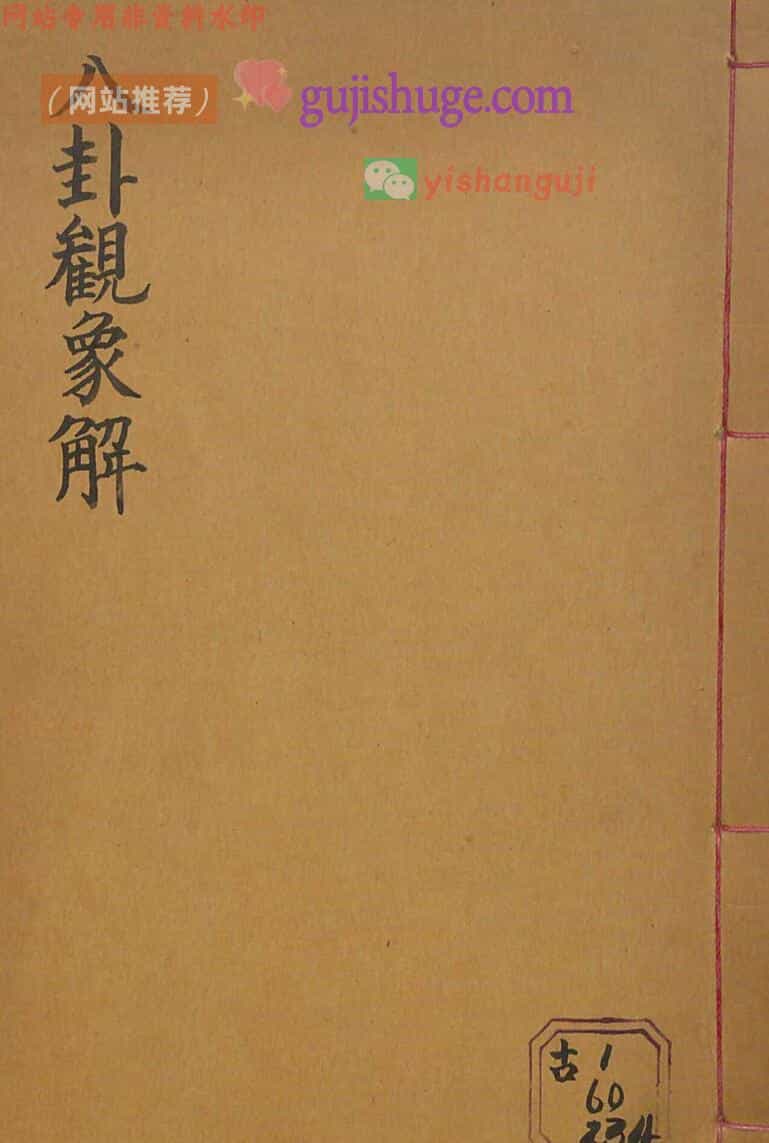 网站专用非资料水印
（网站推荐）
gujishuge.com
yishanguji
八卦觀象解
古 1
60
234